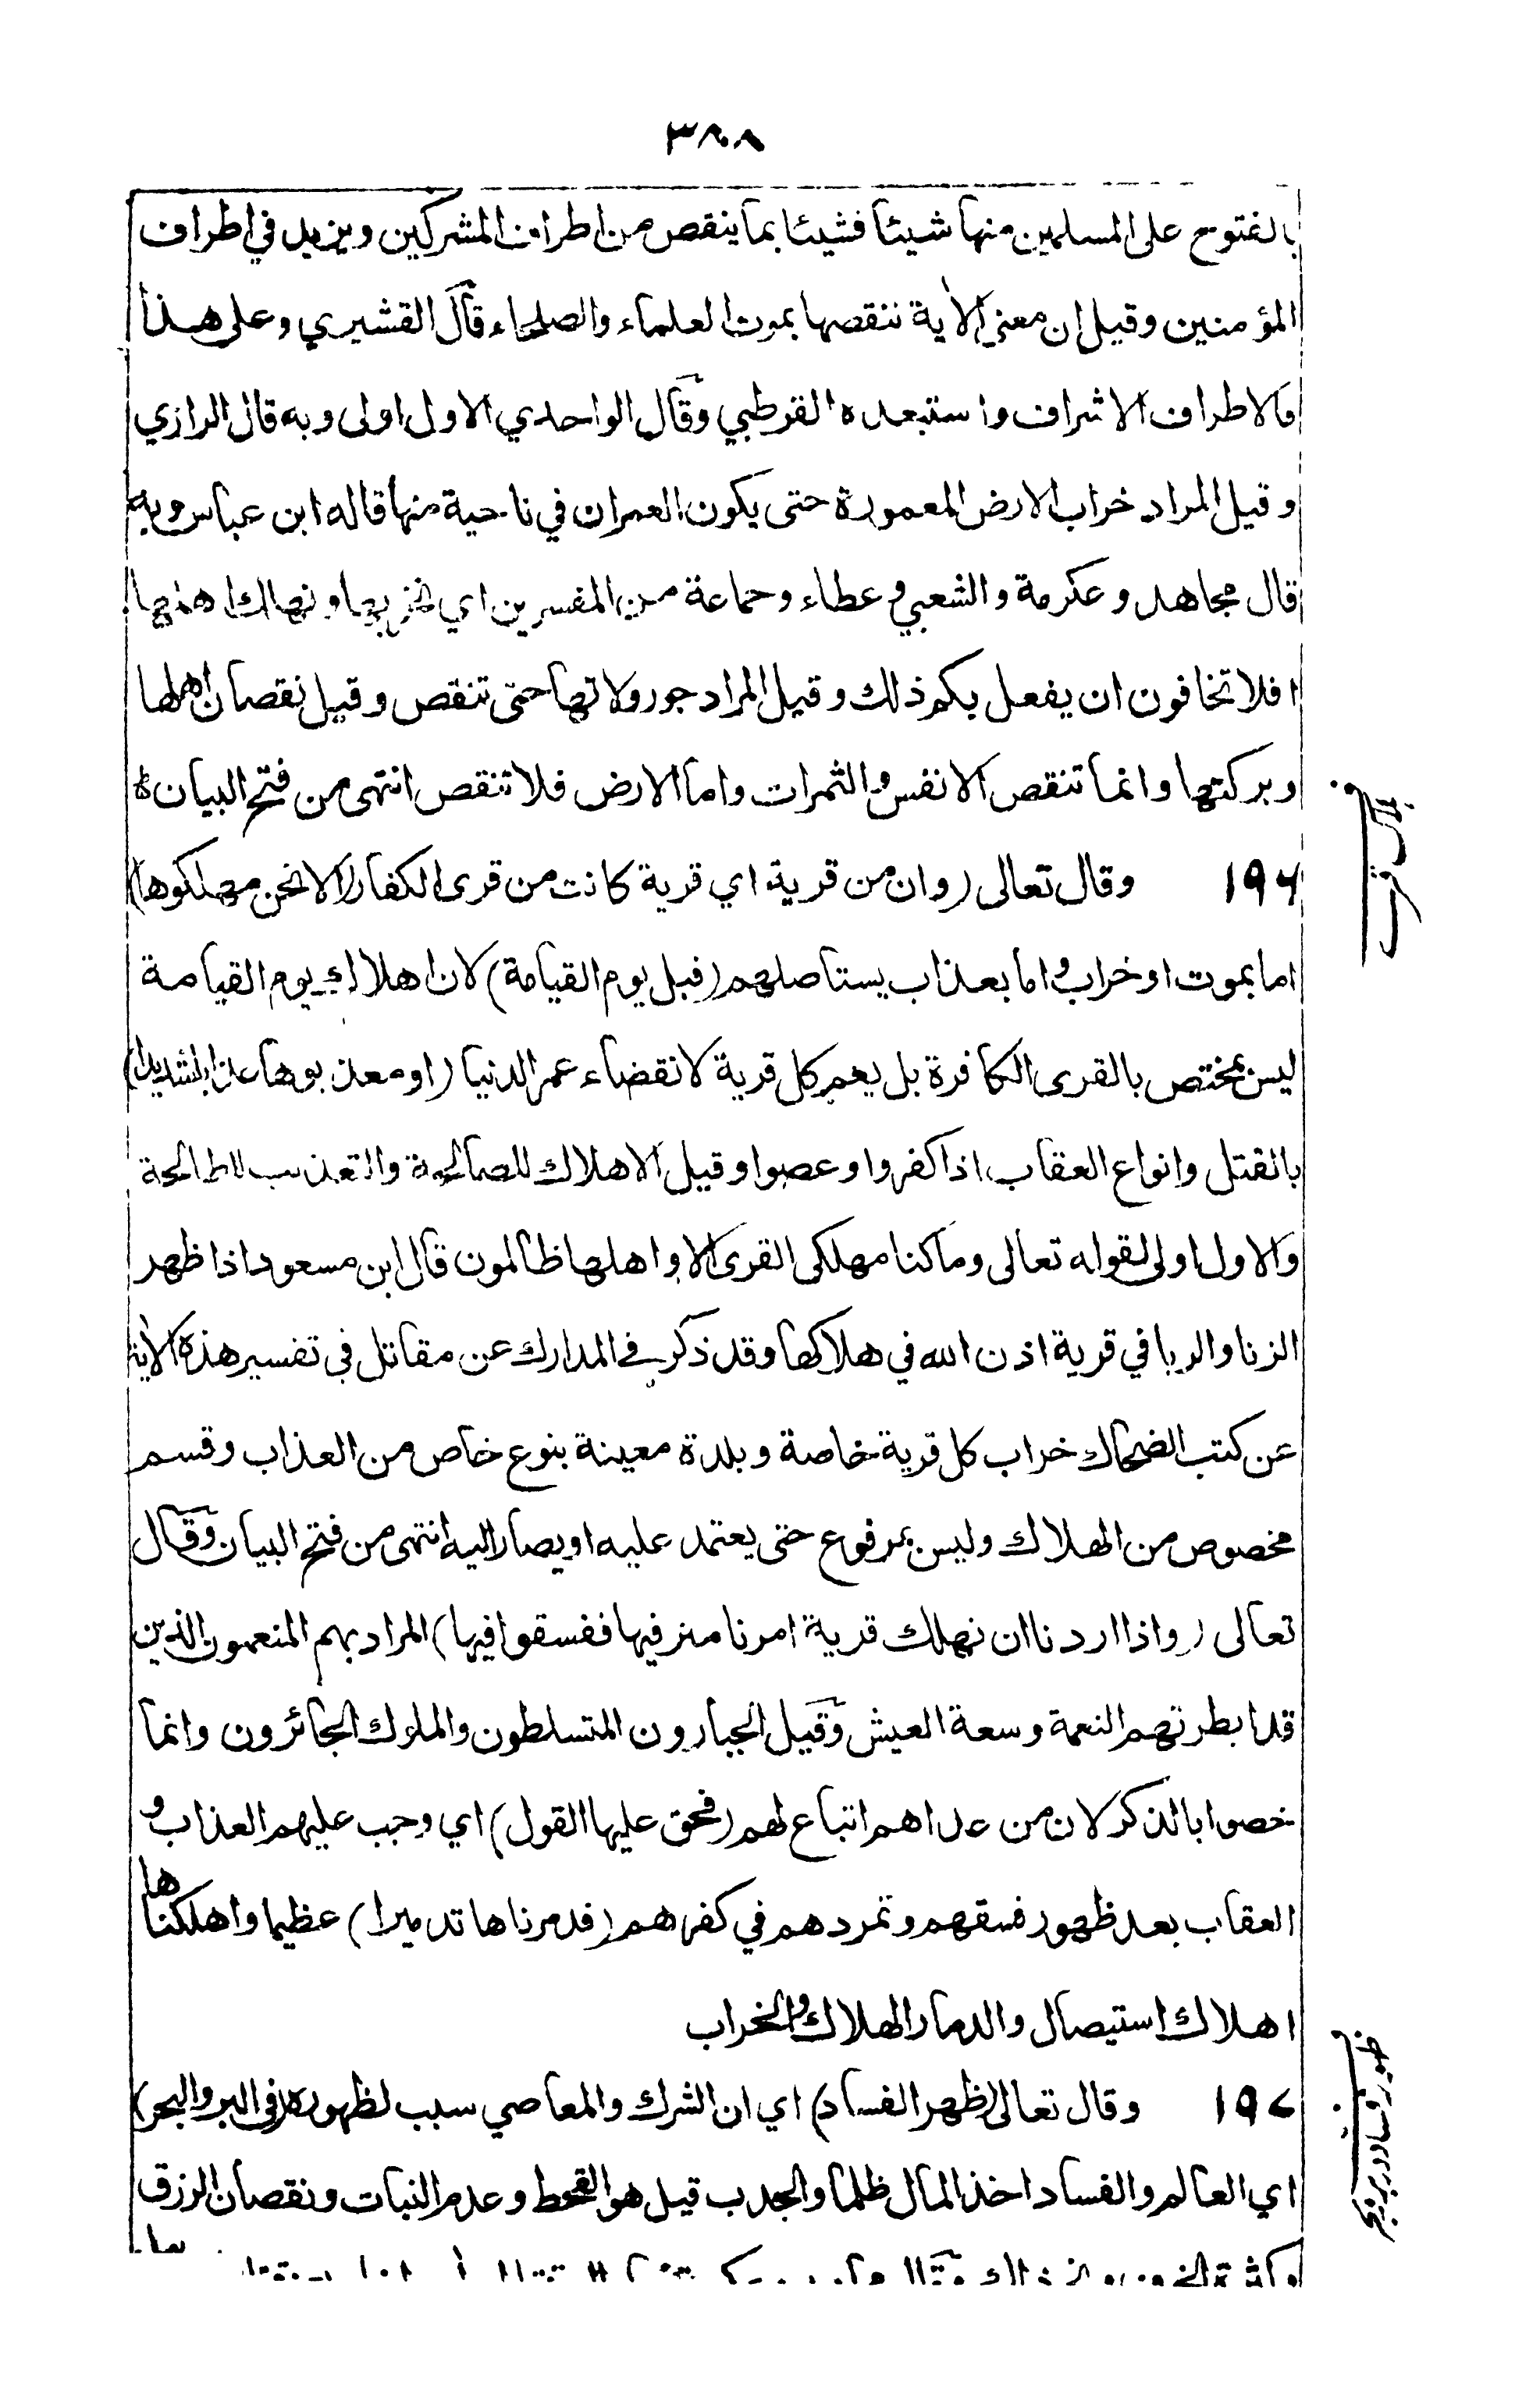 ٣٨٨
بالفتوح على المسلمين منها شيئا فشيئا بما ينقص من اطراف المشركين ويزيد في اطراف
المؤمنين وقيل ان معنى الاية ننقصها بموت العلماء والصلحاء قال القشيري وعلى هذا
فالاطراف الاشراف واستبعده القرطبي وقال الواحدي الاول اولى وبه قال الرازي
وقيل المراد خراب الارض المعمورة حتى يكون العمران في ناحية منها قاله ابن عباس وبه
قال مجاهد وعكرمة والشعبي وعطاء وجماعة من المفسرين اي نخربها ونهلك اهلها
افلا تخافون ان يفعل بكم ذلك وقيل المراد جور ولاتها حتى تنقص وقيل نقصان اهلها
وبركتها وانما تنقص الانفس والثمرات واما الارض فلا تنقص انتهى من فتح البيان
هلاك قرى
١٩٦ وقال تعالى (وان من قرية اي قرية كانت من قرى الكفار (الا نحن مهلكوها)
اما بموت او خراب واما بعذاب يستاصلهم (قبل يوم القيامة) لان اهلاك يوم القيامة
ليس بمختص بالقرى الكافرة بل يعم كل قرية لانقضاء عمر الدنيا (او معذبوها عذابا شديدا)
بالقتل وانواع العقاب اذا كفروا وعصوا وقيل الاهلاك للصالحة والتعذيب للطالحة
والاول اولى لقوله تعالى وما كنا مهلكى القرى الا واهلها ظالمون قال ابن مسعود اذا ظهر
الزنا والربا في قرية اذن الله في هلاكها وقد ذكر في المدارك عن مقاتل فى تفسير هذه الاية
عن كتب الضحاك خراب كل قرية خاصة وبلدة معينة بنوع خاص من العذاب وقسم
مخصوص من الهلاك وليس بمرفوع حتى يعتمد عليه او يصار اليه انتهى من فتح البيان وقال
تعالى (واذا اردنا ان نهلك قرية امرنا مترفيها ففسقوا فيها) المراد بهم المنعمون الذين
قد ابطرتهم النعمة وسعة العيش وقيل الجبارون المتسلطون والملوك الجائرون وانما
خصوا بالذكر لان من عداهم اتباع لهم (فحق عليها القول) اي وجب عليهم العذاب و
العقاب بعد ظهور فسقهم وتمردهم في كفرهم (فدمرناها تدميرا) عظيما واهلكناها
اهلاك استيصال والدمار الهلاك والخراب
ظهور فساد در بر وبحر
١٩٧ وقال تعالى (ظهر الفساد) اي ان الشرك والمعاصي سبب لظهوره (في البر والبحر)
اي العالم والفساد اخذ المال ظلما والجدب قيل هو القحط وعدم النبات ونقصان الرزق